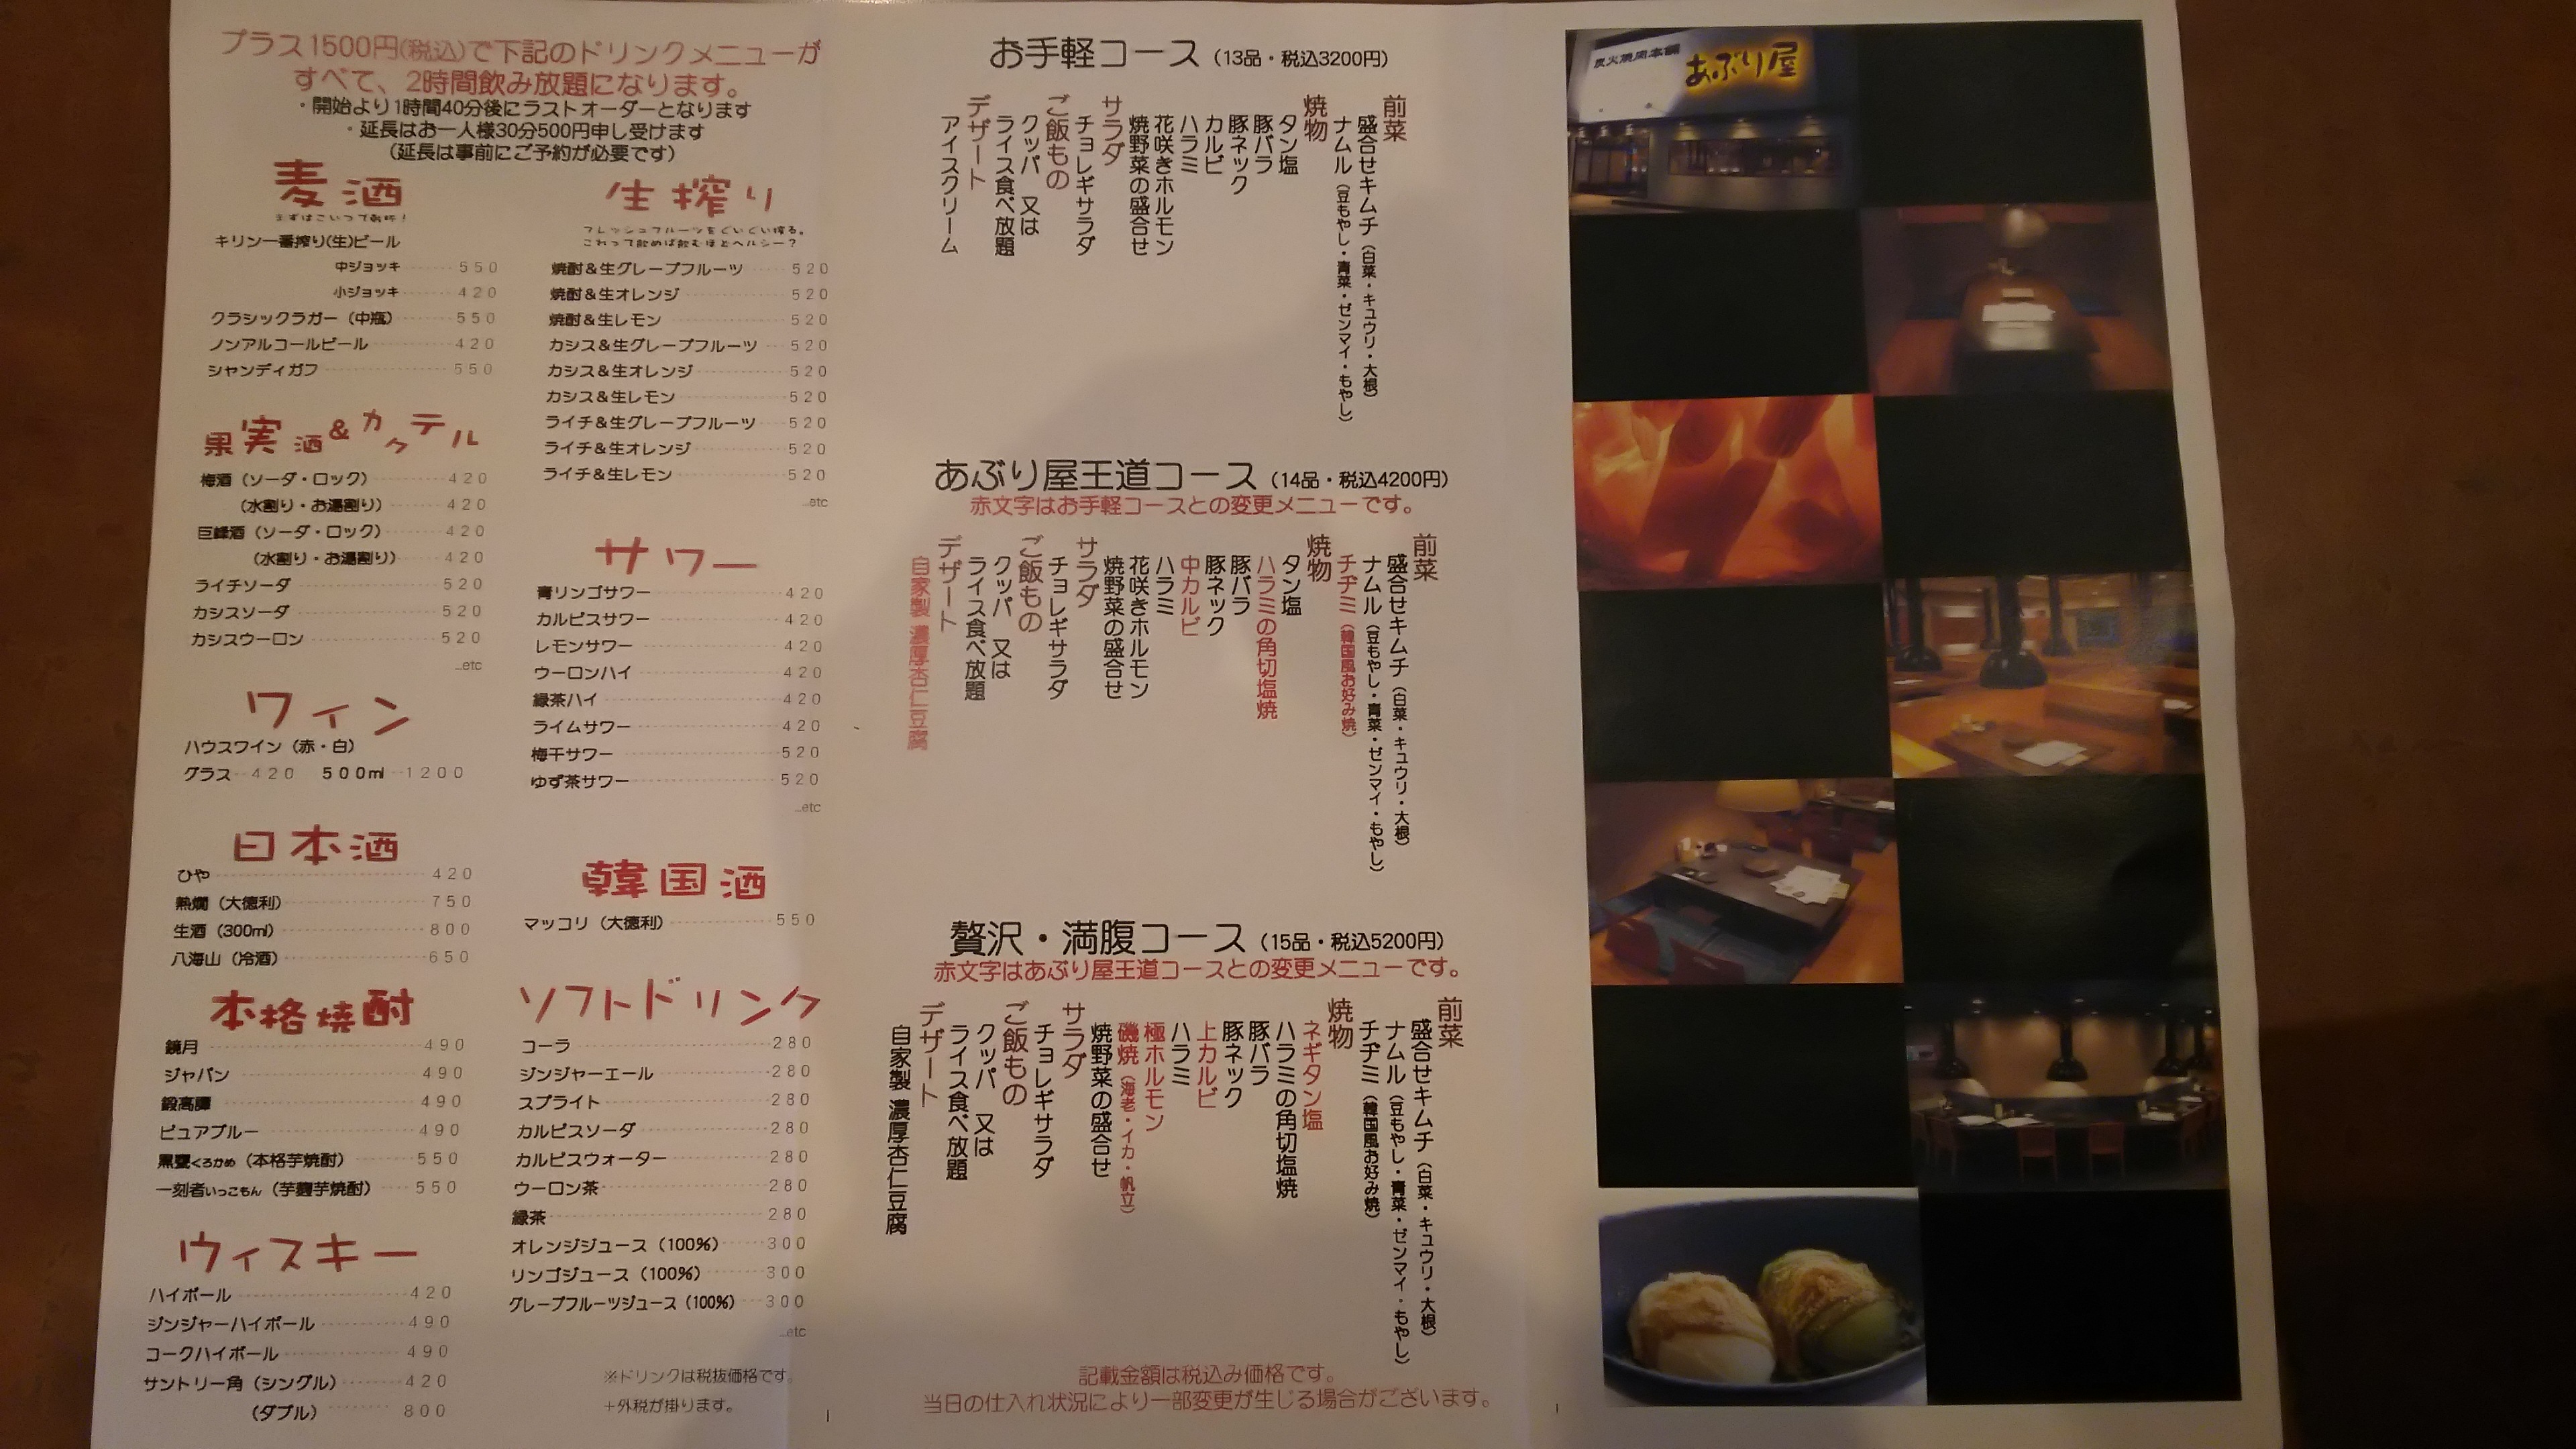 プラス1500円(税込)で下記のドリンクメニューが
すべて、2時間飲み放題になります。
・開始より1時間40分後にラストオーダーとなります
・延長はお一人様30分500円申し受けます
(延長は事前にご予約が必要です)
麦酒
まずはこいつで乾杯!
キリン一番搾り(生)ビール
中ジョッキ 550
小ジョッキ 420
クラシックラガー(中瓶) 550
ノンアルコールビール 420
シャンディガフ 550
果実酒&カクテル
梅酒(ソーダ・ロック) 420
(水割り・お湯割り) 420
巨峰酒(ソーダ・ロック) 420
(水割り・お湯割り) 420
ライチソーダ 520
カシスソーダ 520
カシスウーロン 520
...etc
ワイン
ハウスワイン(赤・白)
グラス 420 500ml 1200
日本酒
ひや 420
熱燗(大徳利) 750
生酒(300ml) 800
八海山(冷酒) 650
本格焼酎
鏡月 490
ジャパン 490
鍛高譚 490
ピュアブルー 490
黒甕くろかめ(本格芋焼酎) 550
一刻者いっこもん(芋麹芋焼酎) 550
ウィスキー
ハイボール 420
ジンジャーハイボール 490
コークハイボール 490
サントリー角(シングル) 420
(ダブル) 800
生搾り
フレッシュフルーツをぐいぐい搾る。
これって飲めば飲むほどヘルシー?
焼酎&生グレープフルーツ 520
焼酎&生オレンジ 520
焼酎&生レモン 520
カシス&生グレープフルーツ 520
カシス&生オレンジ 520
カシス&生レモン 520
ライチ&生グレープフルーツ 520
ライチ&生オレンジ 520
ライチ&生レモン 520
...etc
サワー
青リンゴサワー 420
カルピスサワー 420
レモンサワー 420
ウーロンハイ 420
緑茶ハイ 420
ライムサワー 420
梅干サワー 520
ゆず茶サワー 520
...etc
韓国酒
マッコリ(大徳利) 550
ソフトドリンク
コーラ 280
ジンジャーエール 280
スプライト 280
カルピスソーダ 280
カルピスウォーター 280
ウーロン茶 280
緑茶 280
オレンジジュース(100%) 300
リンゴジュース(100%) 300
グレープフルーツジュース(100%) 300
...etc
※ドリンクは税抜価格です。
+外税が掛ります。
お手軽コース(13品・税込3200円)
前菜
盛合せキムチ(白菜・キュウリ・大根)
ナムル(豆もやし・青菜・ゼンマイ・もやし)
焼物
タン塩
豚バラ
豚ネック
カルビ
ハラミ
花咲きホルモン
焼野菜の盛合せ
サラダ
チョレギサラダ
ご飯もの
クッパ 又は
ライス食べ放題
デザート
アイスクリーム
あぶり屋王道コース(14品・税込4200円)
赤文字はお手軽コースとの変更メニューです。
前菜
盛合せキムチ(白菜・キュウリ・大根)
ナムル(豆もやし・青菜・ゼンマイ・もやし)
チヂミ(韓国風お好み焼)
焼物
タン塩
ハラミの角切塩焼
豚バラ
豚ネック
中カルビ
ハラミ
花咲きホルモン
焼野菜の盛合せ
サラダ
チョレギサラダ
ご飯もの
クッパ 又は
ライス食べ放題
デザート
自家製 濃厚杏仁豆腐
贅沢・満腹コース(15品・税込5200円)
赤文字はあぶり屋王道コースとの変更メニューです。
前菜
盛合せキムチ(白菜・キュウリ・大根)
ナムル(豆もやし・青菜・ゼンマイ・もやし)
チヂミ(韓国風お好み焼)
焼物
ネギタン塩
ハラミの角切塩焼
豚バラ
豚ネック
上カルビ
ハラミ
極ホルモン
磯焼(海老・イカ・帆立)
焼野菜の盛合せ
サラダ
チョレギサラダ
ご飯もの
クッパ 又は
ライス食べ放題
デザート
自家製 濃厚杏仁豆腐
記載金額は税込み価格です。
当日の仕入れ状況により一部変更が生じる場合がございます。
炭火焼肉本舗
あぶり屋